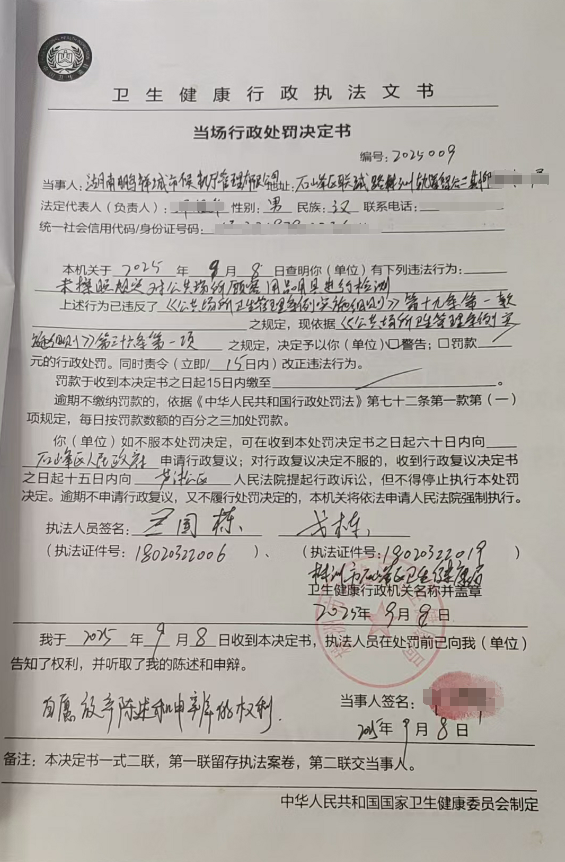 卫生健康行政执法文书
当场行政处罚决定书
编号：2025009
当事人：湖南鹏铎城市候机厅管理有限公司 地址：石峰区联诚路株洲
法定代表人（负责人）： 性别：男 民族：汉 联系电话：
统一社会信用代码/身份证号码：
本机关于 2025 年 9 月 8 日查明你（单位）有下列违法行为：
未按照规定对公共场所顾客用品用具进行检测
上述行为已违反了《公共场所卫生管理条例实施细则》第十九条第一款
之规定，现依据《公共场所卫生管理条例实
施细则》第三十六条第一项 之规定，决定予以你（单位）口警告；口罚款
元的行政处罚。同时责令（立即/ 15日内）改正违法行为。
罚款于收到本决定书之日起15日内缴至
逾期不缴纳罚款的，依据《中华人民共和国行政处罚法》第七十二条第一款第（一）
项规定，每日按罚款数额的百分之三加处罚款。
你（单位）如不服本处罚决定，可在收到本处罚决定书之日起六十日内向
石峰区人民政府 申请行政复议；对行政复议决定不服的，收到行政复议决定书
之日起十五日内向 芦淞区 人民法院提起行政诉讼，但不得停止执行本处罚
决定。逾期不申请行政复议，又不履行处罚决定的，本机关将依法申请人民法院强制执行。
执法人员签名：
（执法证件号：18020322006 ）、（执法证件号：18020322019 ）
株洲市石峰区卫生健康局
卫生健康行政机关名称并盖章
2025年 9 月 8 日
我于 2025 年 9 月 8 日收到本决定书，执法人员在处罚前已向我（单位）
告知了权利，并听取了我的陈述和申辩。
自愿放弃陈述和申辩的权利.
当事人签名：
2025年 9 月 8 日
备注：本决定书一式二联，第一联留存执法案卷，第二联交当事人。
中华人民共和国国家卫生健康委员会制定